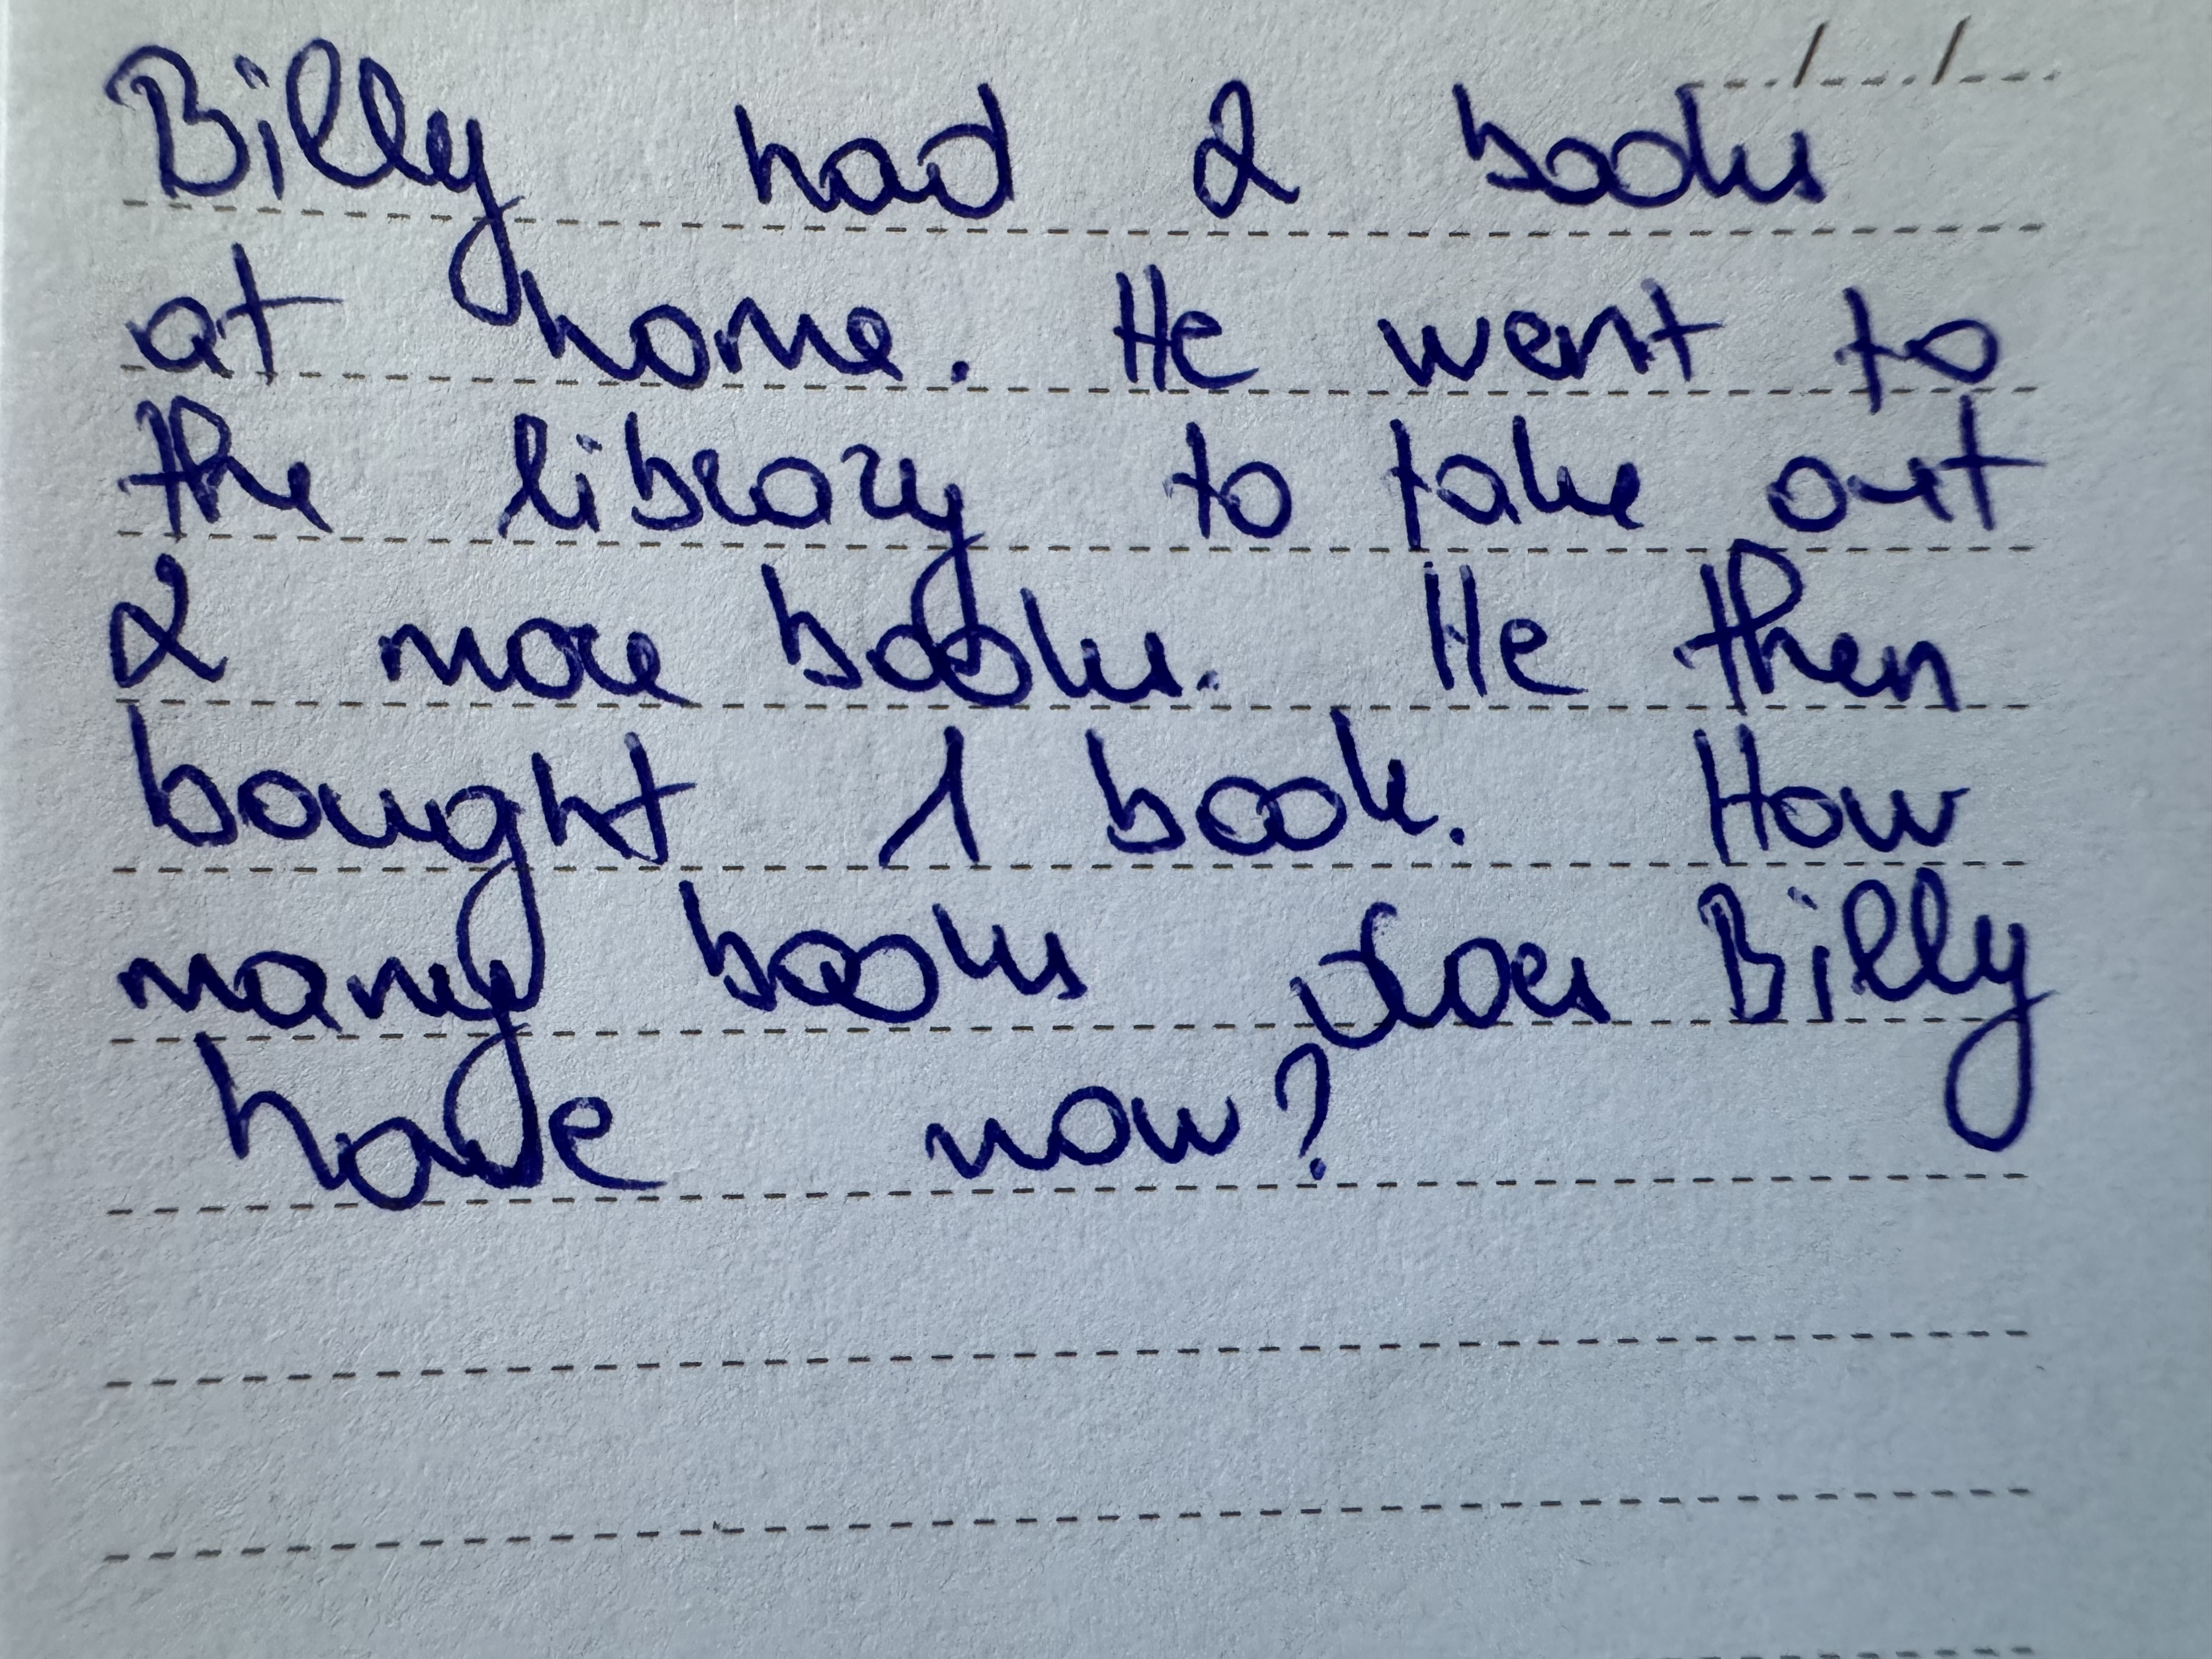 Billy had 2 books
at home. He went to
the library to take out
2 more books. He then
bought 1 book. How
many books does Billy
have now?